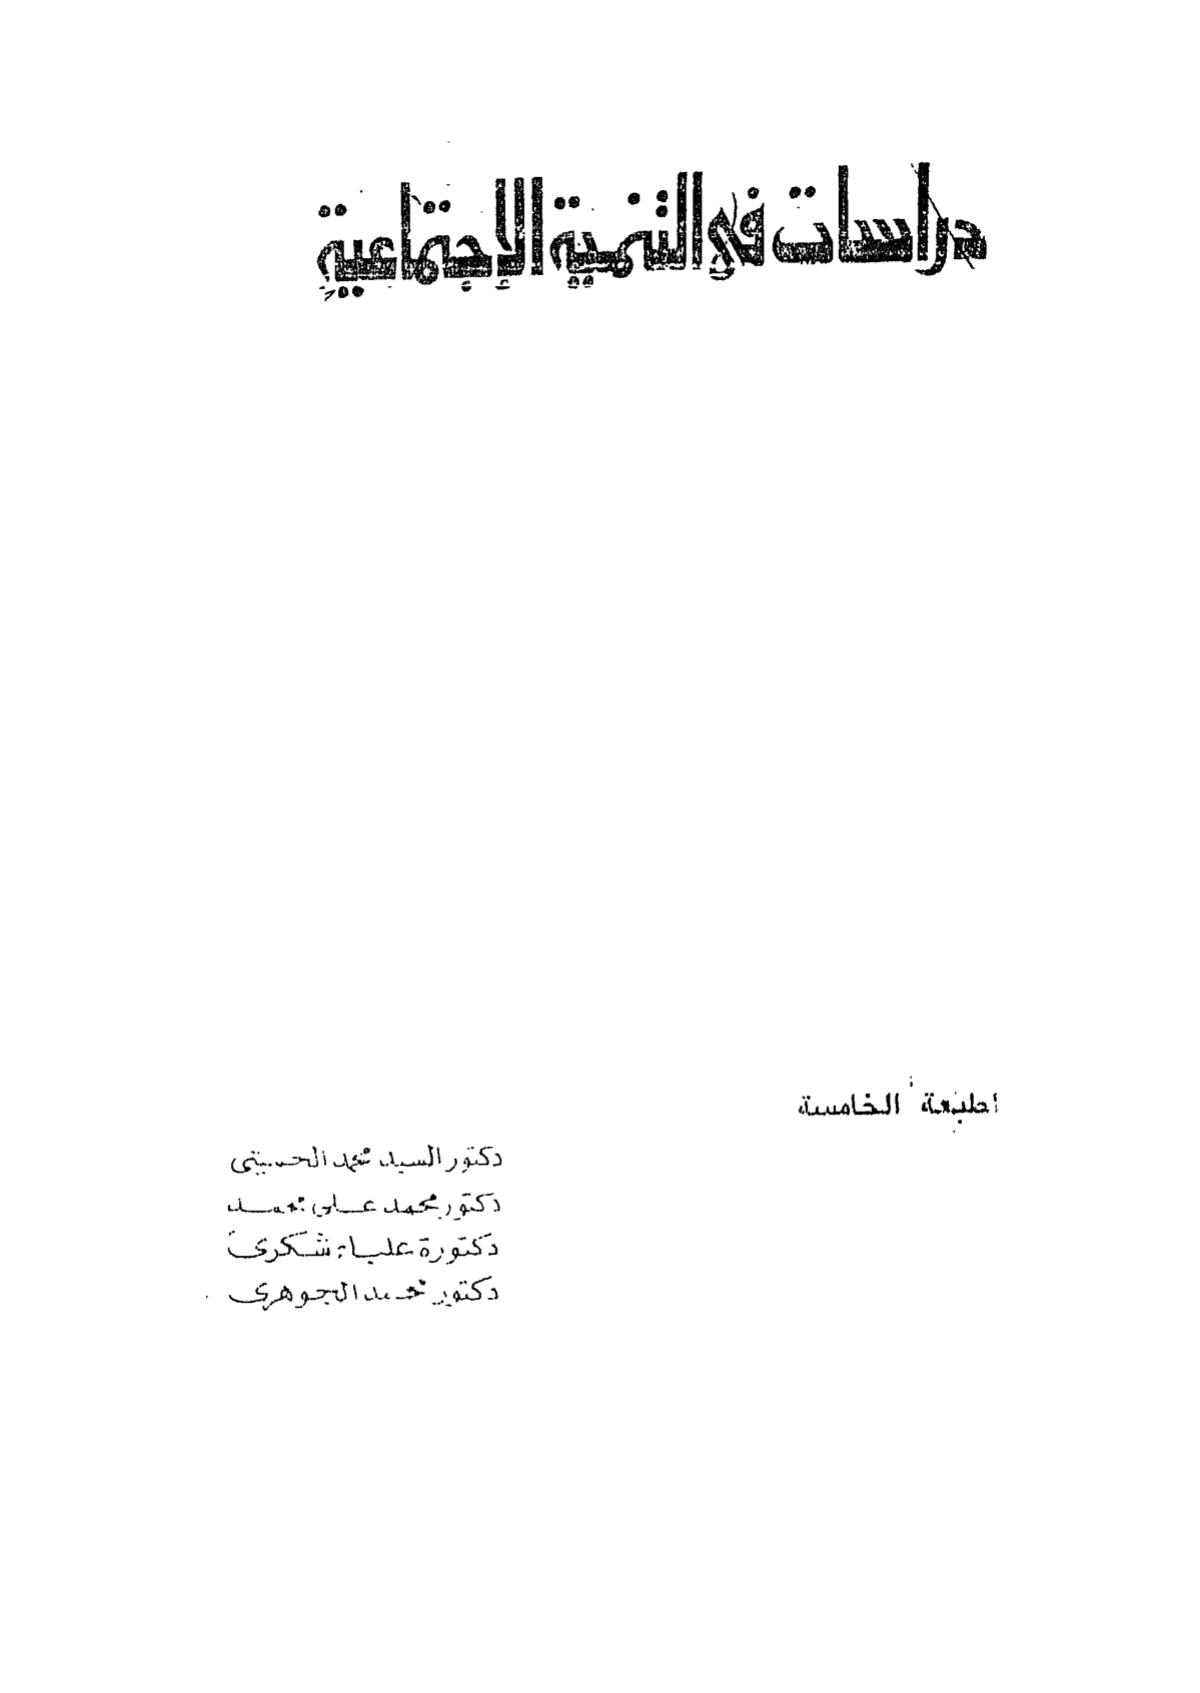 دراسات في التنمية الإجتماعية
الطبعة الخامسة
دكتور السيد محمد الحسيني
دكتور محمد علي محمد
دكتورة علياء شكري
دكتور محمد الجوهري